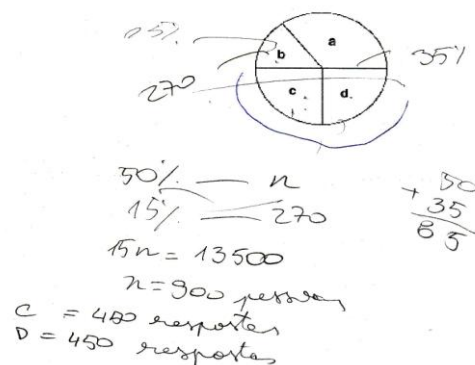 15%
a
b
35%
270
c
d
50% — n
15% — 270
50
+ 35
85
15n = 13500
n = 900 pessoas
C = 450 respostas
D = 450 respostas